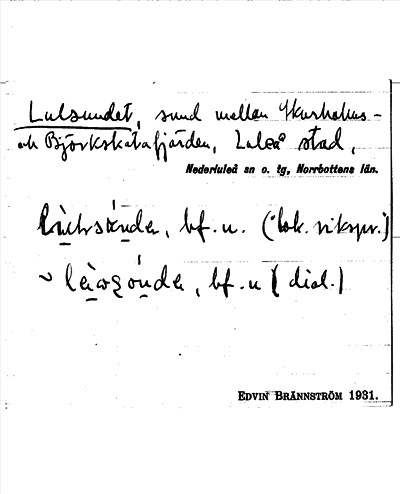 Lulsundet, sund mellan Skurholms-
och Björkskatafjärden, Luleå stad,
Nederluleå sn o. tg, Norrbottens län.
bf. n. ("bok. rikspr.")
~ bf. n (dial.)
EDVIN BRÄNNSTRÖM 1931.